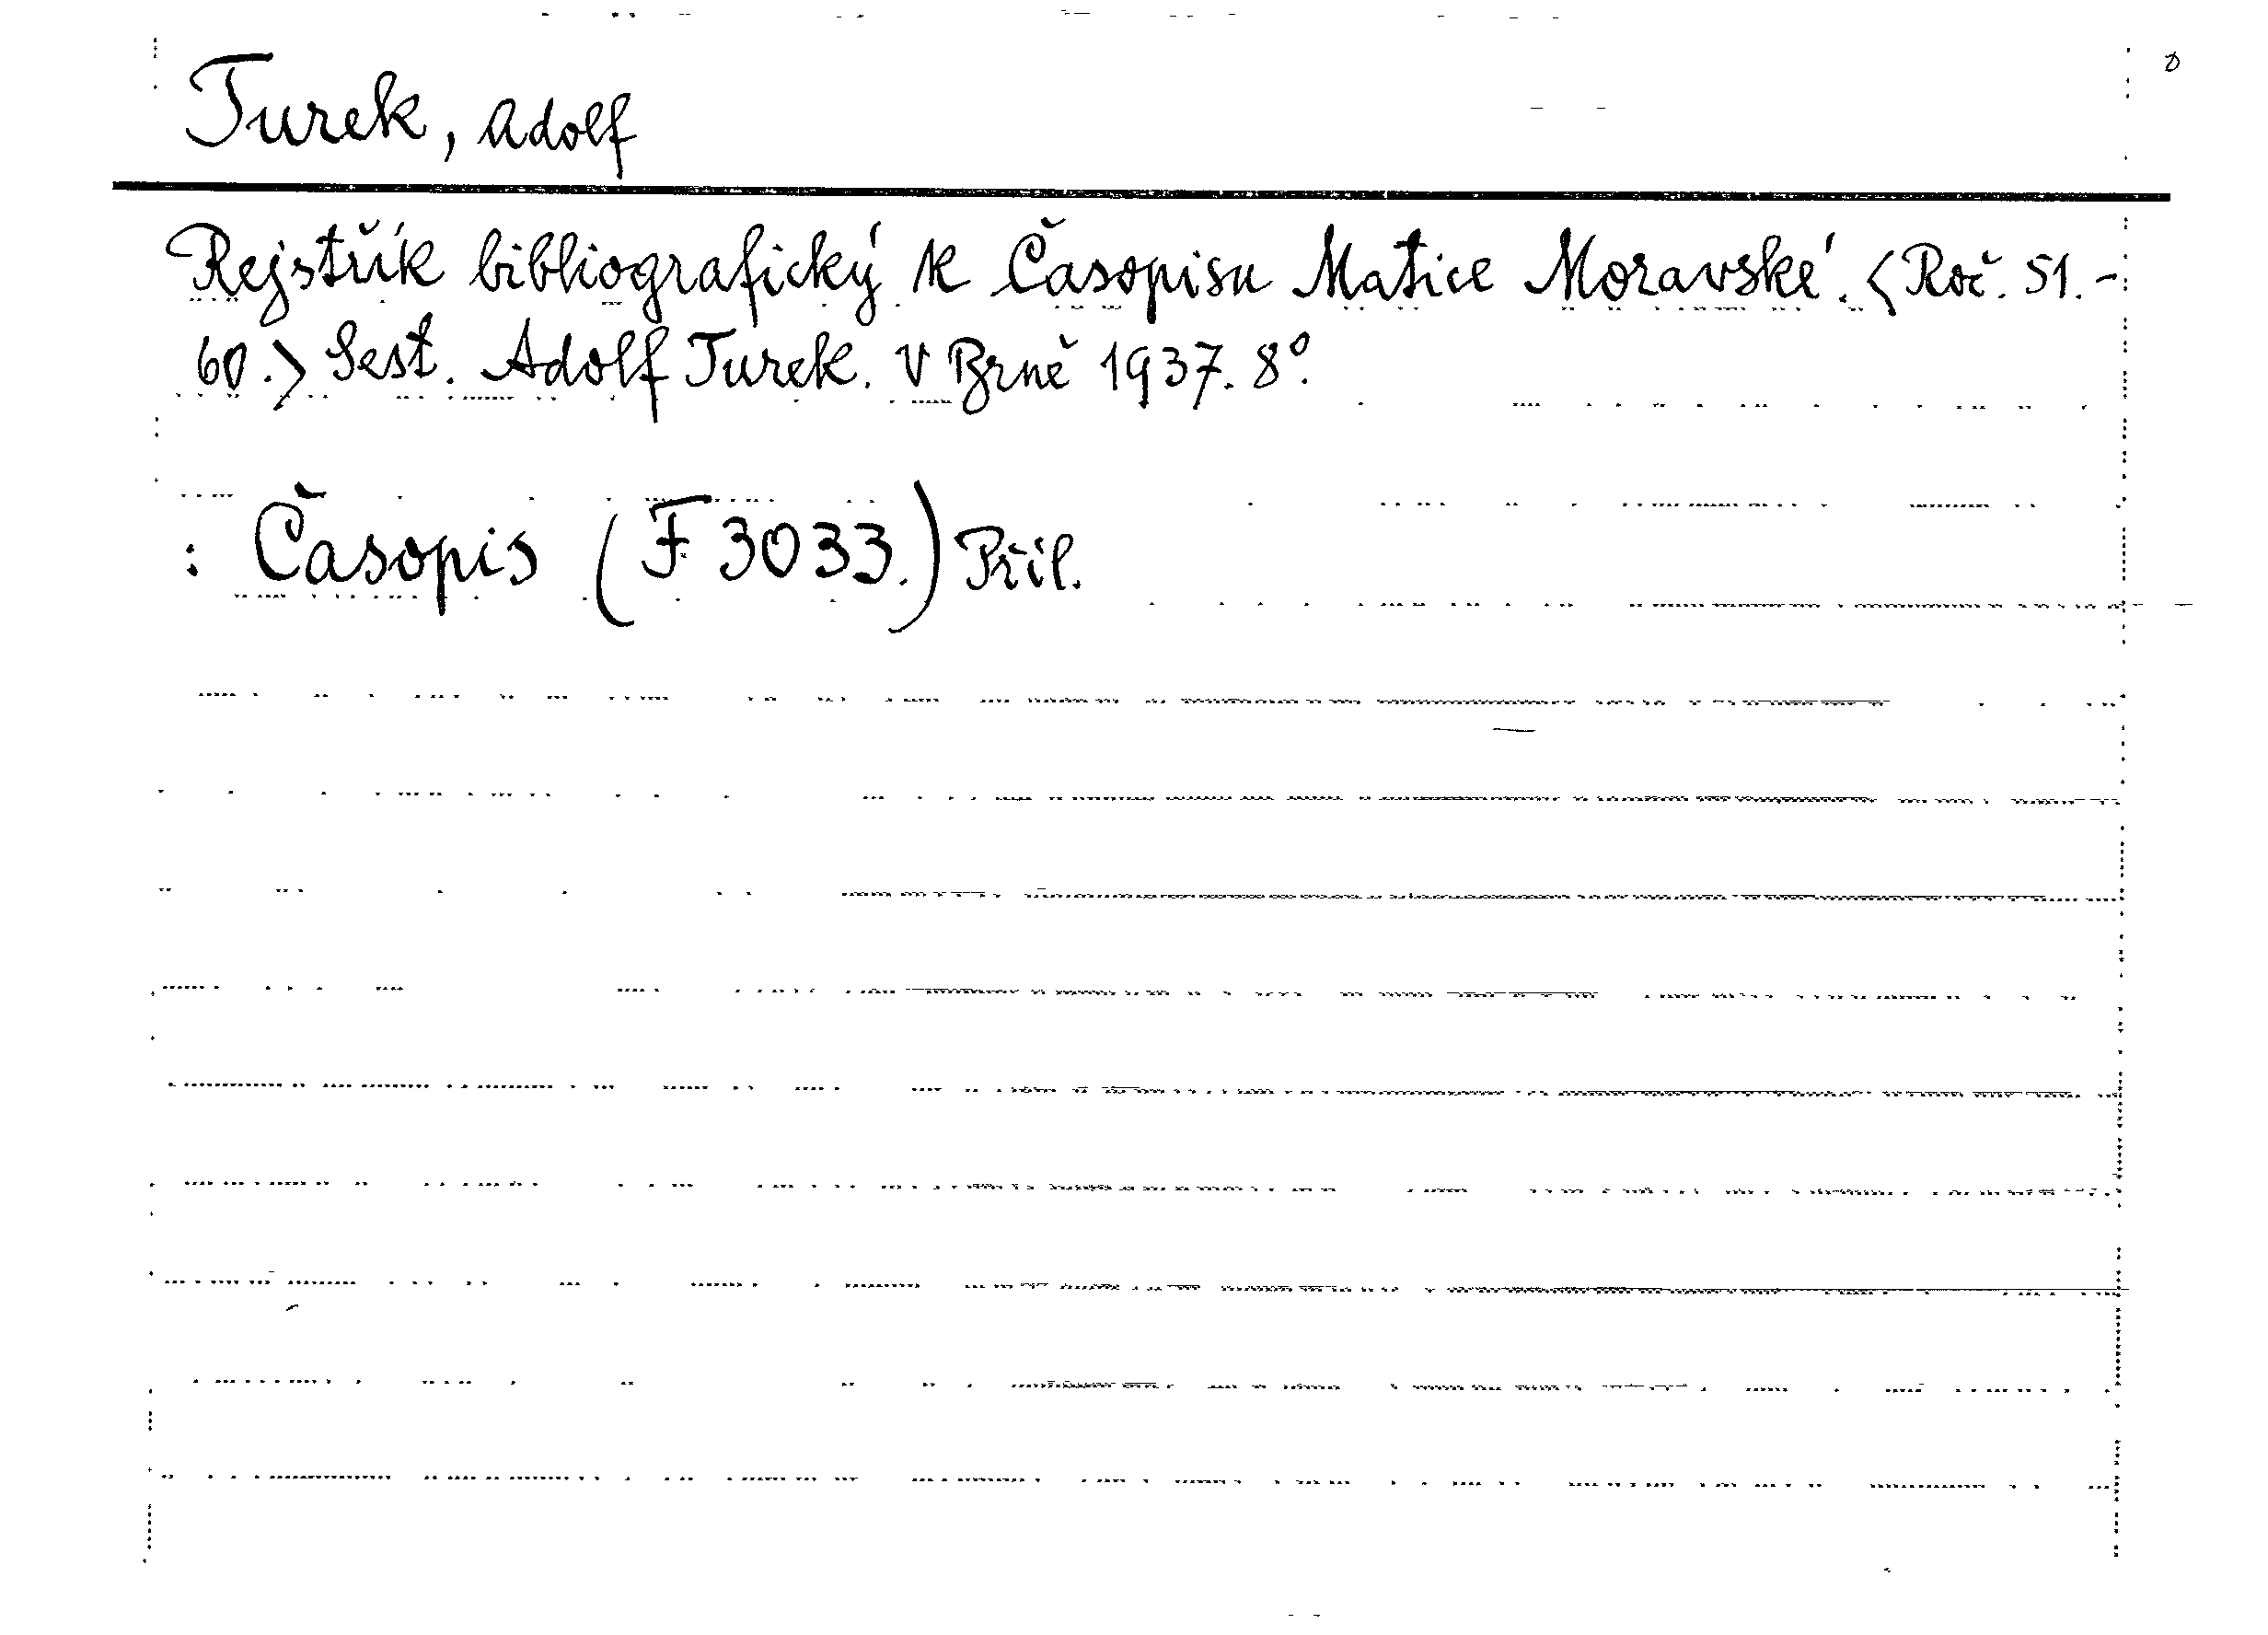 Turek, Adolf
Rejstřík bibliografický k Časopisu Matice Moravské. <Roč. 51.-
60.> Sest. Adolf Turek. V Brně 1937. 8°.
: Časopis (F 3033.) Příl.